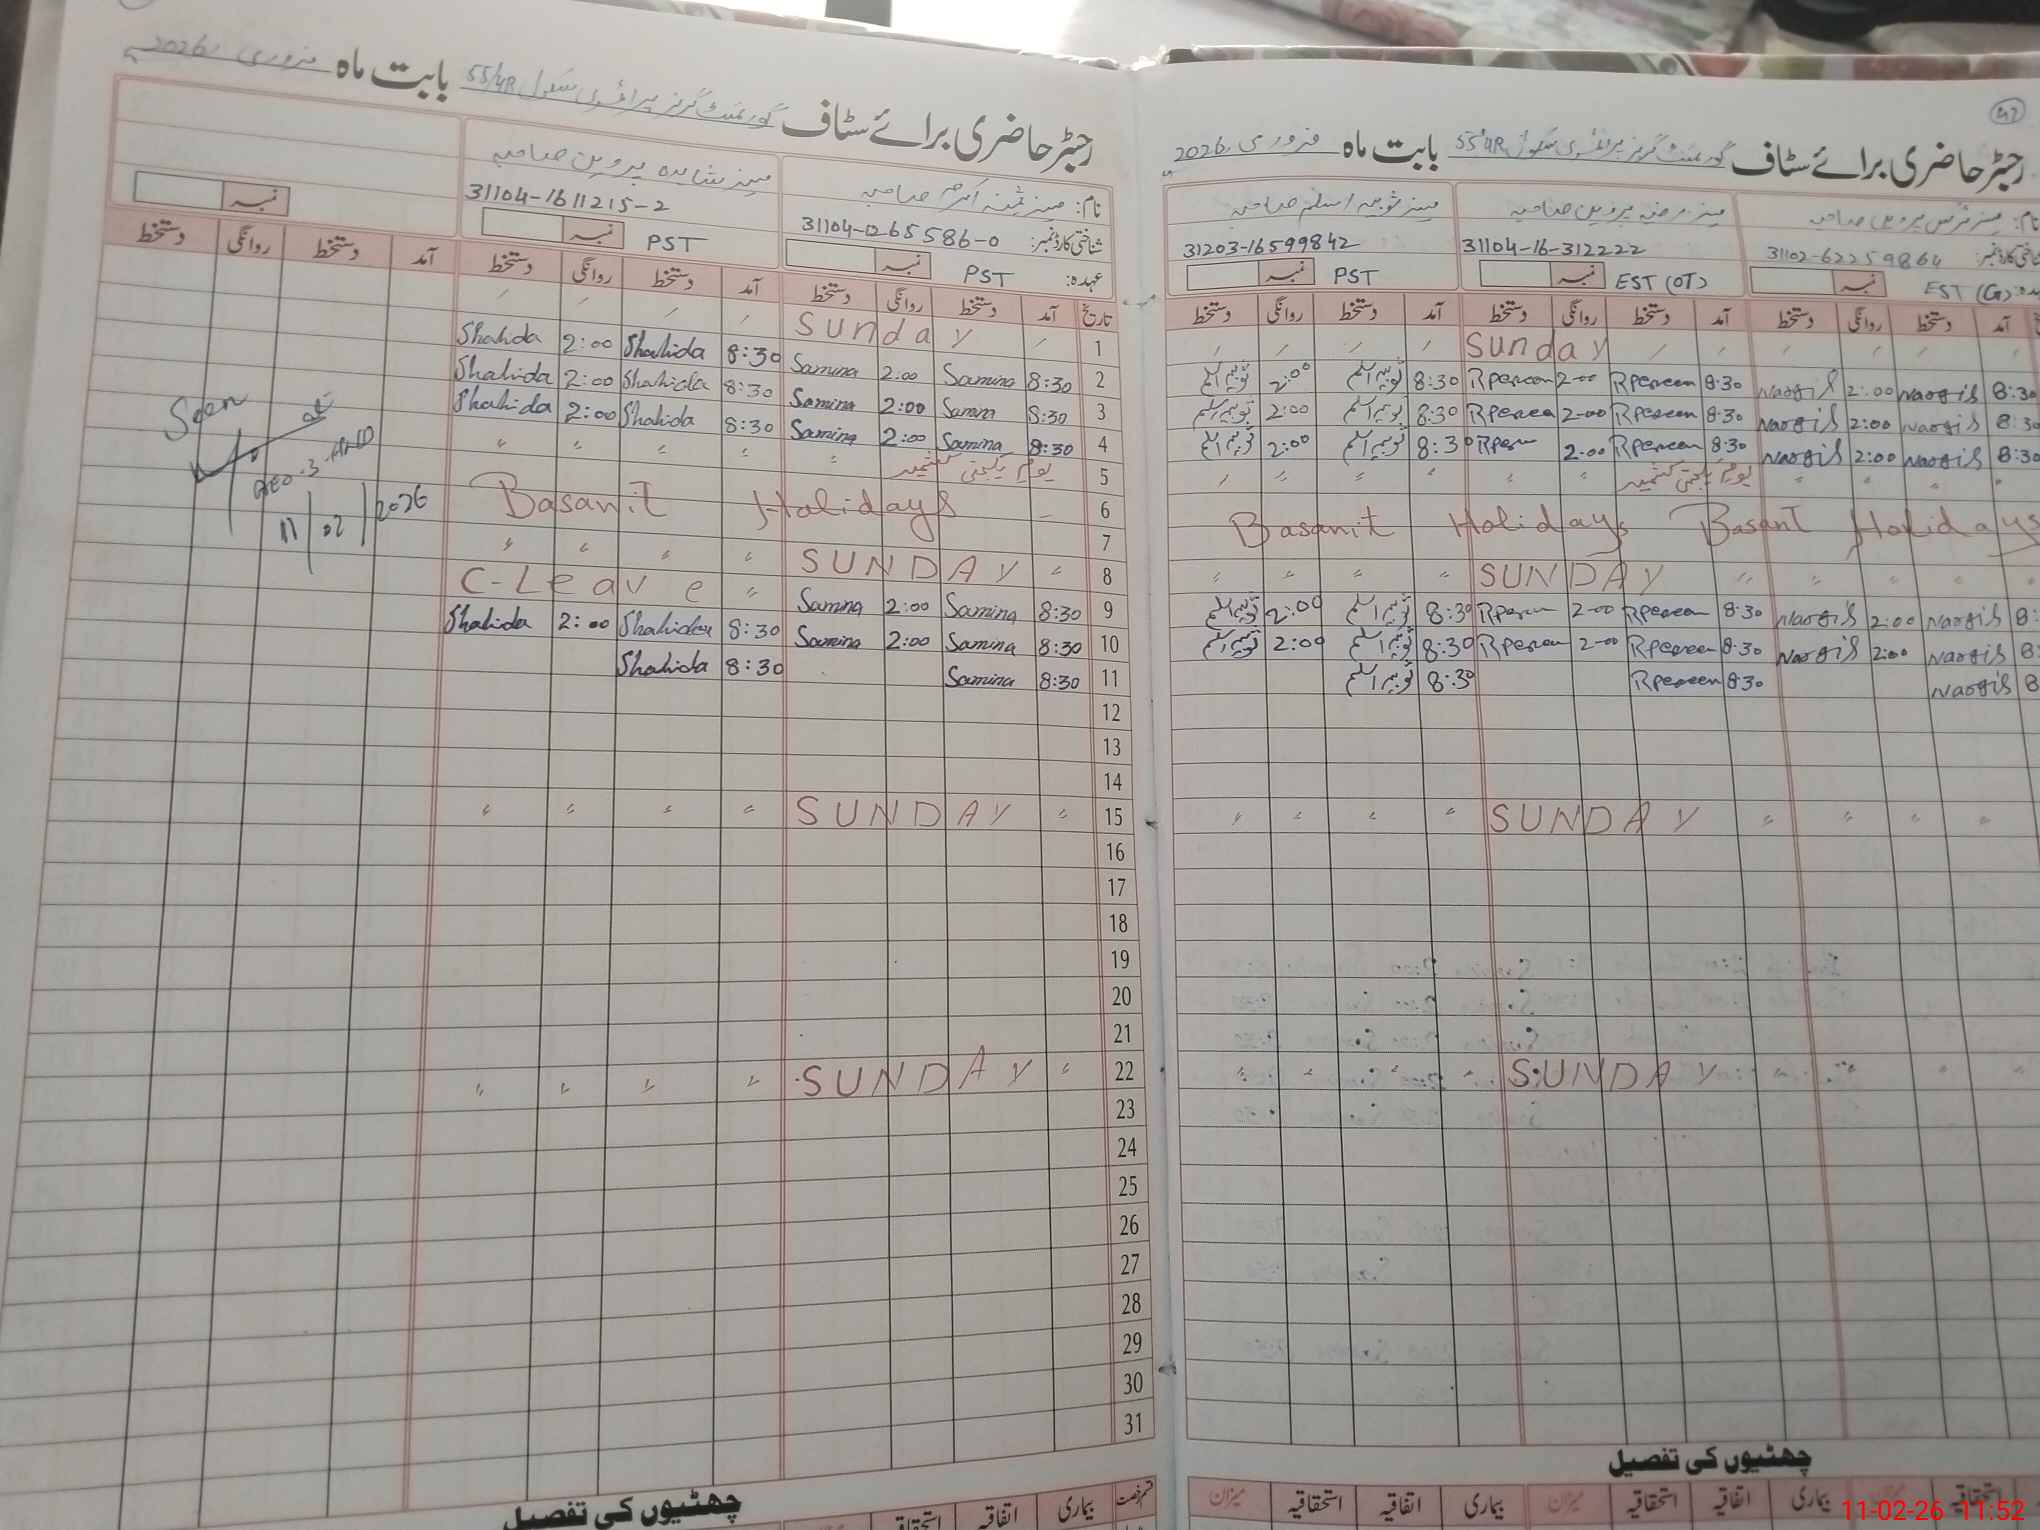 رجسٹر حاضری برائے سٹاف گورنمنٹ گرلز پرائمری سکول 55/4R بابت ماہ فروری 2026
نام: مسز ثمینہ اکرم صاحبہ مسز شاہدہ پروین صاحبہ
شناختی کارڈ نمبر: 31104-1265586-0 31104-1611215-2
عہدہ: PST نمبر PST نمبر نمبر
تاریخ آمد دستخط روانگی دستخط آمد دستخط روانگی دستخط آمد دستخط روانگی دستخط
1 Sunday
2 8:30 Samina 2:00 Samina 8:30 Shahida 2:00 Shahida
3 8:30 Samina 2:00 Samina 8:30 Shahida 2:00 Shahida
4 8:30 Samina 2:00 Samina 8:30 Shahida 2:00 Shahida
5 یوم یکجہتی کشمیر
6 Basanit Holidays
7
8 SUNDAY
9 8:30 Samina 2:00 Samina C-Leave
10 8:30 Samina 2:00 Samina 8:30 Shahida 2:00 Shahida
11 8:30 Samina 8:30 Shahida
12
13
14
15 SUNDAY
16
17
18
19
20
21
22 SUNDAY
23
24
25
26
27
28
29
30
31
Seen
11/02/2026
چھٹیوں کی تفصیل
قسم رخصت بیماری اتفاقیہ استحقاقیہ میزان
42
رجسٹر حاضری برائے سٹاف گورنمنٹ گرلز پرائمری سکول 55/4R بابت ماہ فروری 2026
نام: مسز نرگس پروین صاحبہ مسز رضیہ پروین صاحبہ مسز ثوبیہ اسلم صاحبہ
شناختی کارڈ نمبر: 31102-62259864 31104-16-312222 31203-16599842
EST (G) نمبر EST (OT) نمبر PST نمبر
آمد دستخط روانگی دستخط آمد دستخط روانگی دستخط آمد دستخط روانگی دستخط
Sunday
8:30 Nargis 2:00 Nargis 8:30 Rperveen 2-00 Rperveen 8:30 ثوبیہ اسلم 2:00 ثوبیہ اسلم
8:30 Nargis 2:00 Nargis 8:30 Rperveen 2-00 Rperveen 8:30 ثوبیہ اسلم 2:00 ثوبیہ اسلم
8:30 Nargis 2:00 Nargis 8:30 Rperveen 2-00 Rperveen 8:30 ثوبیہ اسلم 2:00 ثوبیہ اسلم
یوم یکجہتی کشمیر
Basanit Holidays Basant Holidays
SUNDAY
8: Nargis 2:00 Nargis 8:30 Rperveen 2-00 Rperveen 8:30 ثوبیہ اسلم 2:00 ثوبیہ اسلم
8: Nargis 2:00 Nargis 8:30 Rperveen 2-00 Rperveen 8:30 ثوبیہ اسلم 2:00 ثوبیہ اسلم
8 Nargis 8:30 Rperveen 8:30 ثوبیہ اسلم
SUNDAY
SUNDAY
چھٹیوں کی تفصیل
میزان بیماری اتفاقیہ استحقاقیہ میزان بیماری اتفاقیہ استحقاقیہ میزان
11-02-26 11:52